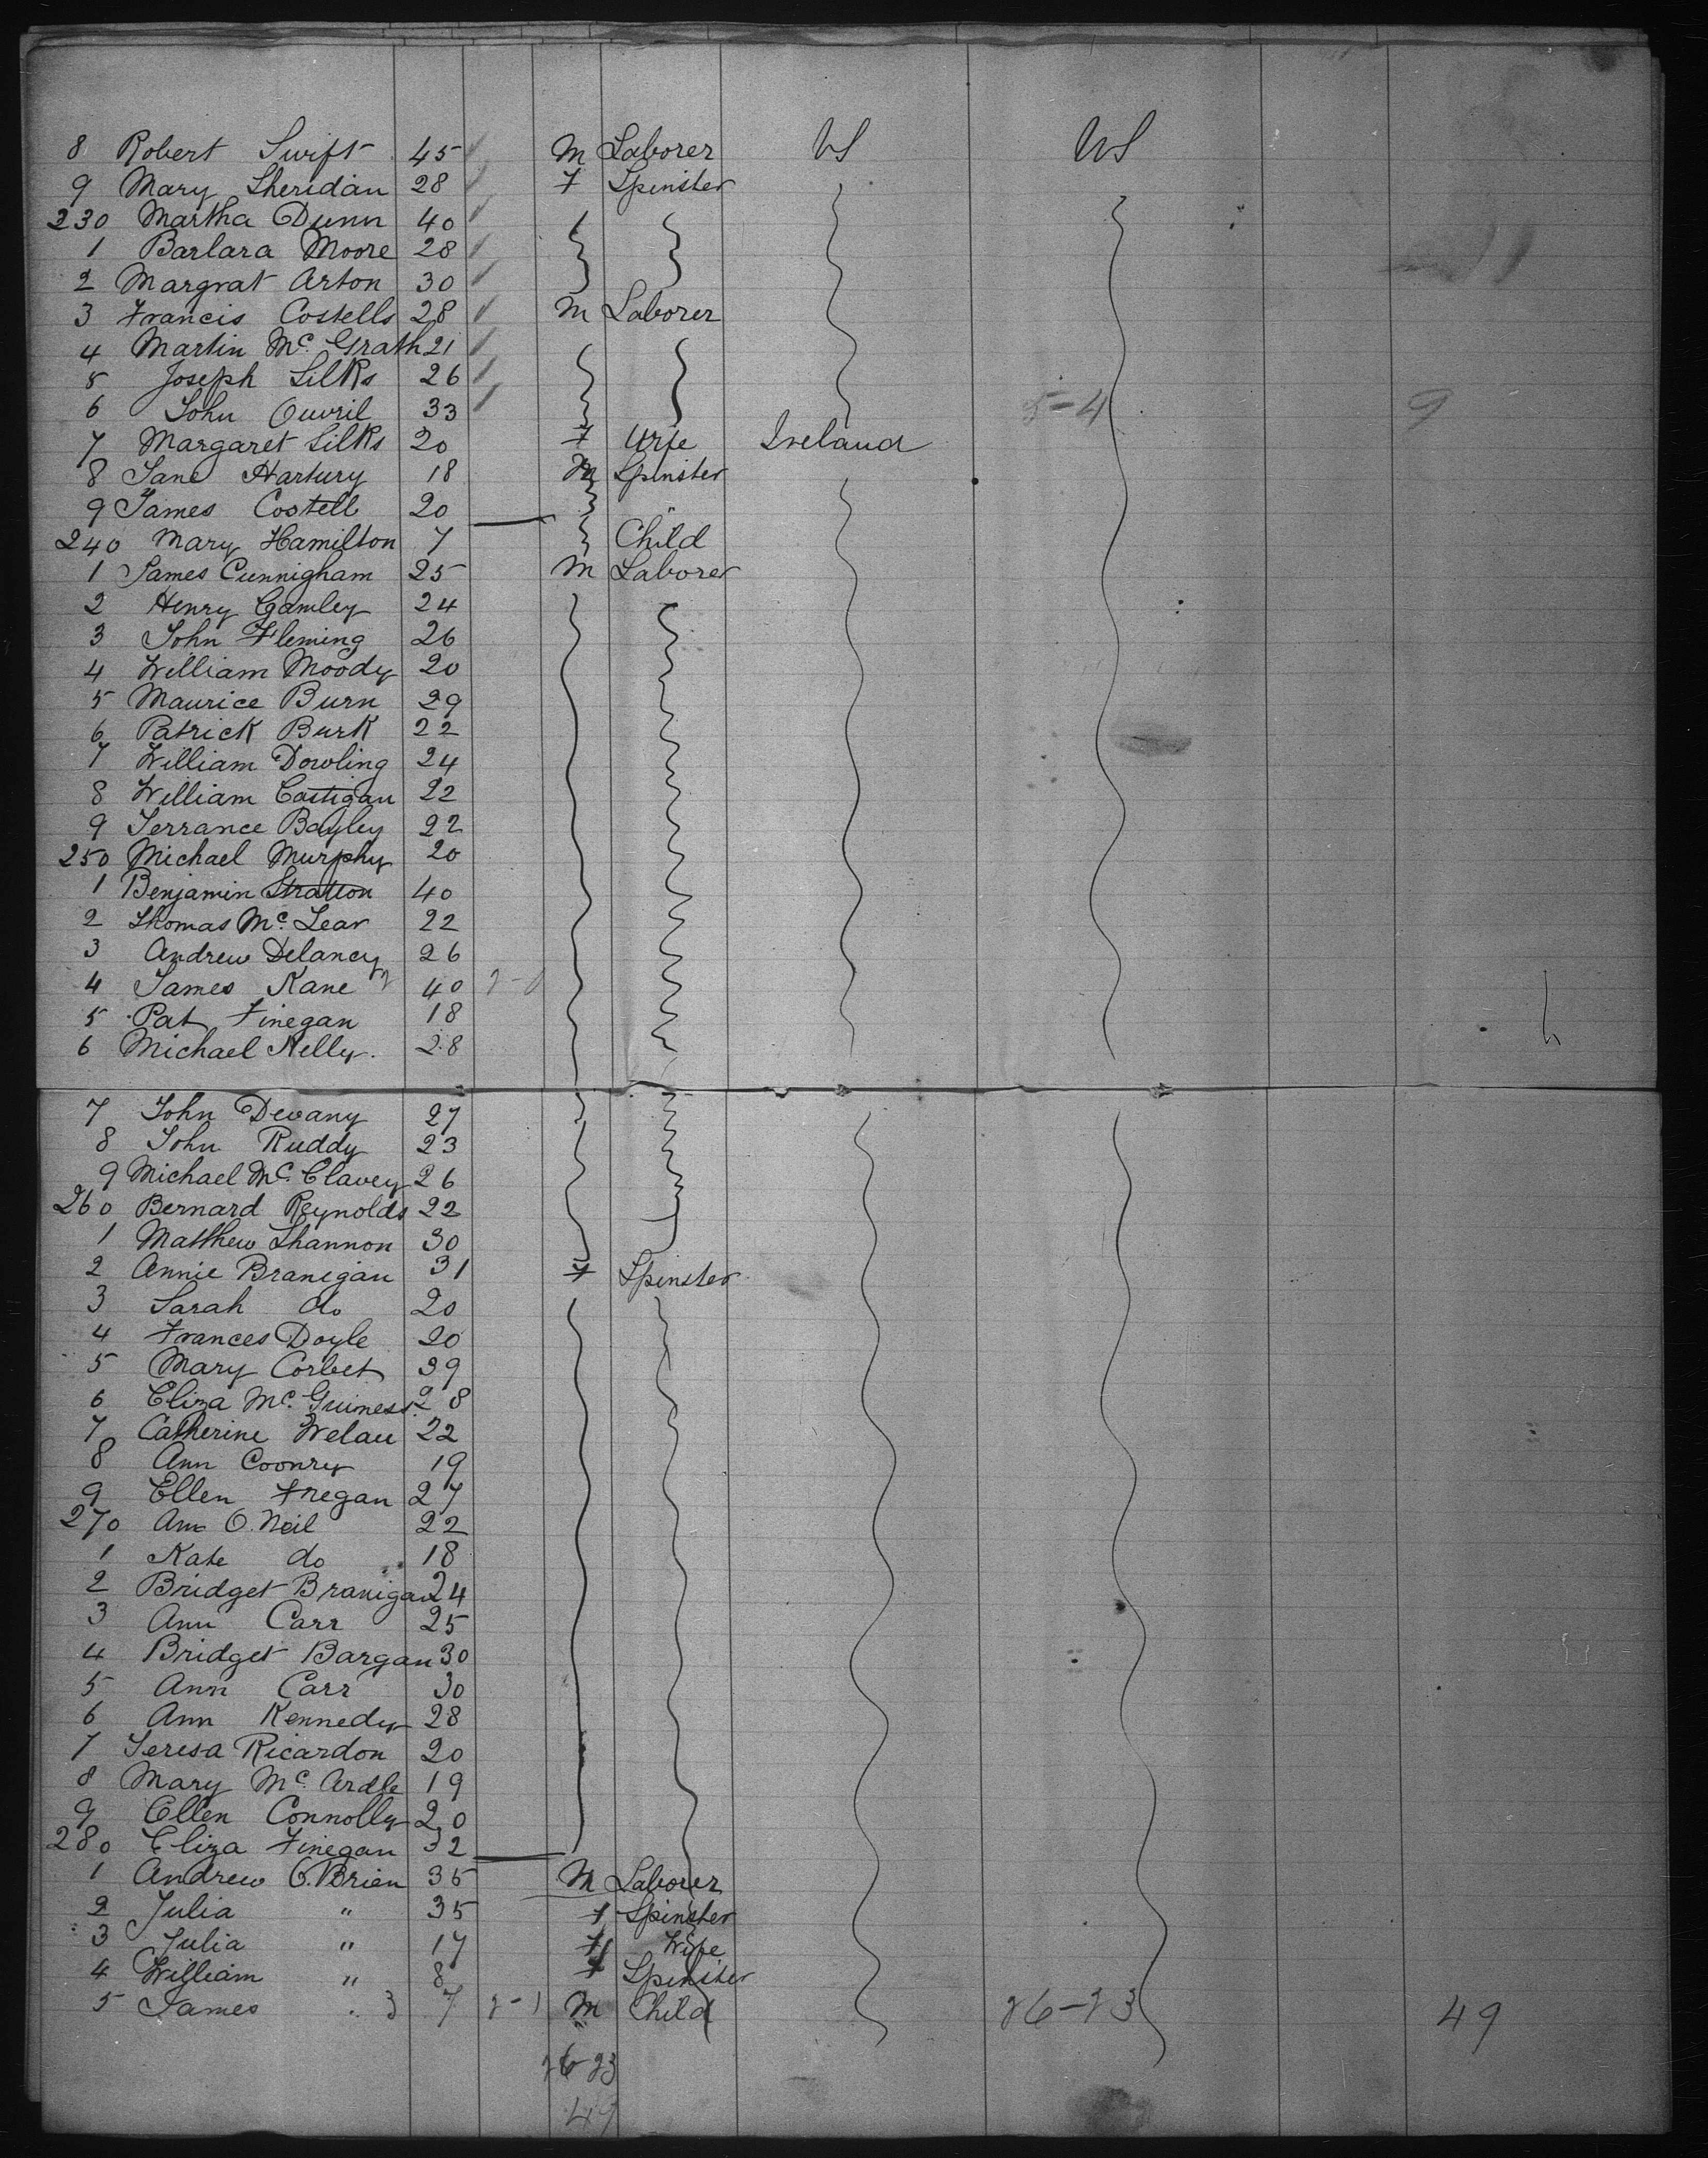 8 Robert Swift 45 M Laborer US US
9 Mary Sheridan 28 F Spinster
230 Martha Dunn 40
1 Barbara Moore 28
2 Margrat Arton 30
3 Francis Costells 28 M Laborer
4 Martin Mc Grath 21
5 Joseph Silks 26
6 John Ouvril 33 5-4 9
7 Margaret Silks 20 F Wife Ireland
8 Jane Hartury 18 Spinster
9 James Costell 20
240 Mary Hamilton 7 Child
1 James Cunnigham 25 M Laborer
2 Henry Gamley 24
3 John Fleming 26
4 William Moody 20
5 Maurice Burn 29
6 Patrick Burk 22
7 William Dowling 24
8 William Costigan 22
9 Terrance Bayley 22
250 Michael Murphy 20
1 Benjamin Stratton 40
2 Thomas Mc Lear 22
3 Andrew Delancy 26
4 James Kane 40
5 Pat Finegan 18
6 Michael Kelly 28
7 John Devany 27
8 John Ruddy 23
9 Michael Mc Clavey 26
260 Bernard Reynolds 22
1 Matthew Shannon 30
2 Annie Branigan 31 F Spinster
3 Sarah do 20
4 Frances Doyle 20
5 Mary Corbet 39
6 Eliza Mc Guiness 28
7 Catherine Welau 22
8 Ann Coonry 19
9 Ellen Fregan 27
270 Ann O. Neil 22
1 Kate do 18
2 Bridget Branigan 24
3 Ann Carr 25
4 Bridget Bargan 30
5 Ann Carr 30
6 Ann Kennedy 28
7 Teresa Ricardon 20
8 Mary Mc Ardle 19
9 Ellen Connolly 20
280 Eliza Finegan 32
1 Andrew O. Brien 35 M Laborer
2 Julia " 35 F Spinster
3 Julia " 17 F Wife
4 William " 8 F Spinster
5 James 7 2-1 M Child 26-23 49
26-23
49